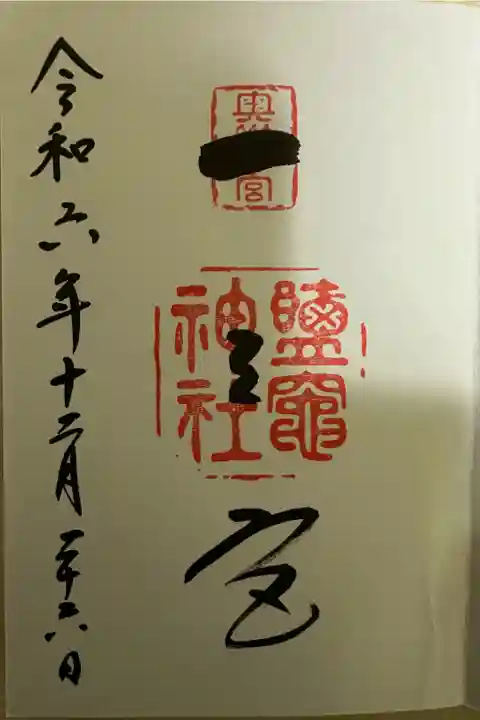 奥宮
鹽竈
神社
一之宮
令和六年十二月二十六日